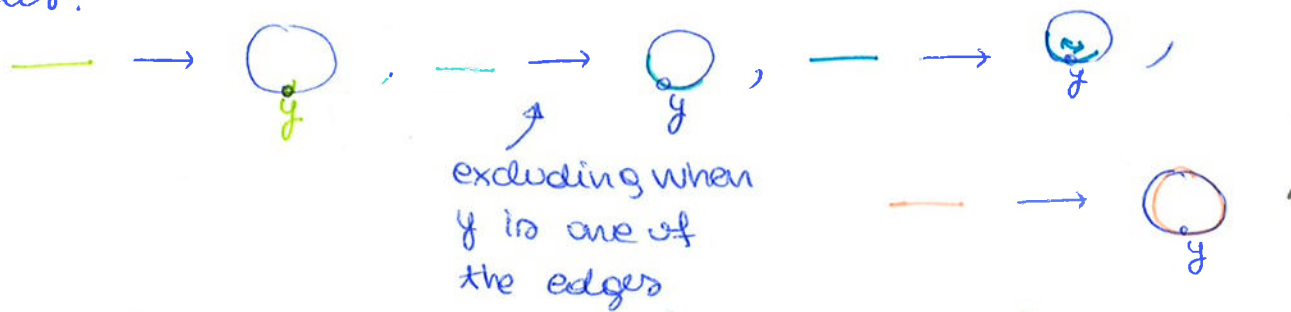 y
y
,
y
,
excluding when
y is one of
the edges
y